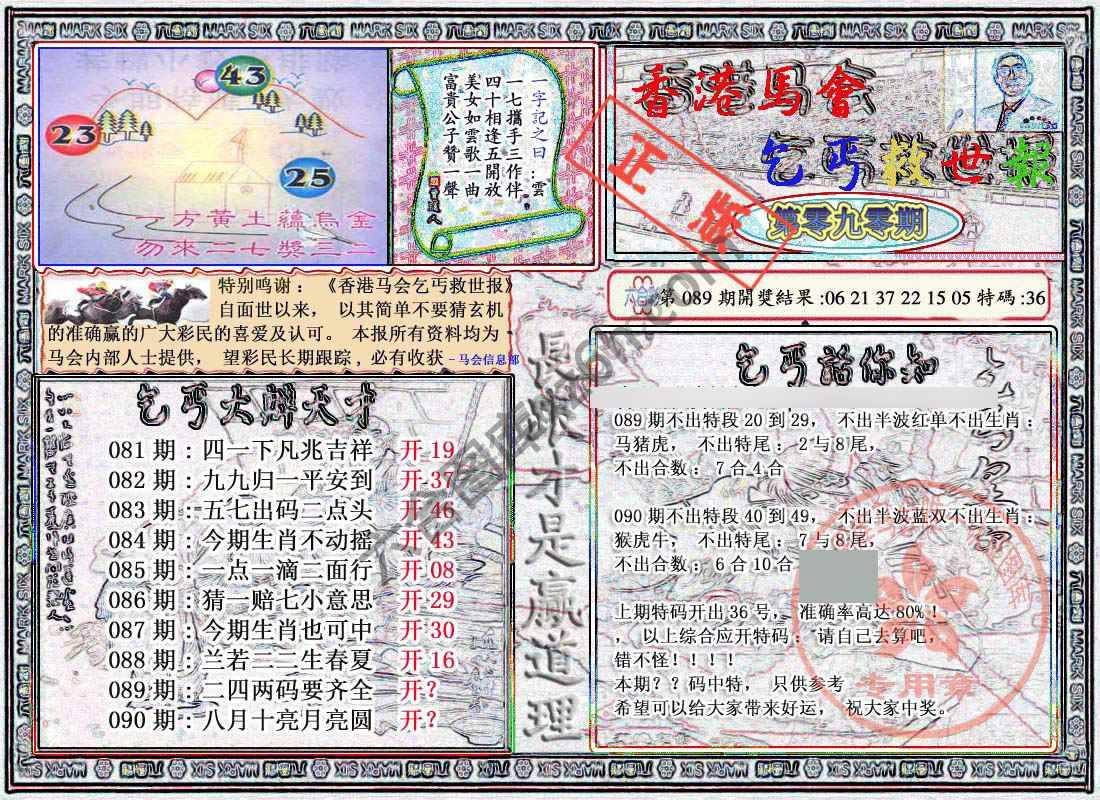 43
23
25
一方黃土蘊烏金
勿來二七獎三二
一字記之曰：雲
一七攜手三作伴
四十相逢五開放
美女如雲歌一曲
富貴公子贊一聲
香港馬會
乞丐救世報
正版
第零九零期
特别鸣谢：《香港马会乞丐救世报》
自面世以来， 以其简单不要猜玄机
的准确赢的广大彩民的喜爱及认可。 本报所有资料均为
马会内部人士提供， 望彩民长期跟踪，必有收获 －马会信息部
第 089 期開獎結果 :06 21 37 22 15 05 特碼 :36
081 期：四一下凡兆吉祥 开 19
082 期：九九归一平安到 开 37
083 期：五七出码二点头 开 46
084 期：今期生肖不动摇 开 43
085 期：一点一滴二面行 开 08
086 期：猜一赔七小意思 开 29
087 期：今期生肖也可中 开 30
088 期：兰若三二生春夏 开 16
089 期：二四两码要齐全 开？
090 期：八月十亮月亮圆 开？
長眼才是赢道理
乞丐話你知
089 期不出特段 20 到 29， 不出半波红单不出生肖：
马猪虎， 不出特尾： 2 与 8 尾，
不出合数： 7 合 4 合
090 期不出特段 40 到 49， 不出半波蓝双不出生肖：
猴虎牛， 不出特尾： 7 与 8 尾，
不出合数： 6 合 10 合
上期特码开出 36 号， 准确率高达 80%！
， 以上综合应开特码： 请自己去算吧，
错不怪！！！！
本期？？码中特， 只供参考
希望可以给大家带来好运， 祝大家中奖。
专用章